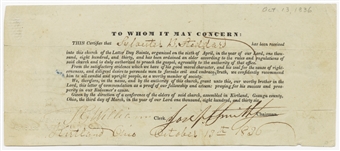 Oct 13, 1836
TO WHOM IT MAY CONCERN:
THIS Certifies that Sylvester B. Stoddard has been received
into this church of the Latter Day Saints, organized on the sixth of April, in the year of our Lord, one thou-
sand, eight hundred, and thirty, and has been ordained an elder according to the rules and regulations of
said church and is duly authorized to preach the gospel, agreeably to the authority of that office.
From the satisfactory evidence which we have of his good moral character, and his zeal for the cause of right-
eousness, and diligent desire to persuade men to forsake evil and embrace truth, we confidently recommend
him to all candid and upright people, as a worthy member of society.
We, therefore, in the name, and by the authority of this church, grant unto this, our worthy brother in
the Lord, this letter of commendation as a proof of our fellowship and esteem: praying for his success and pros-
perity in our Redeemer's cause.
Given by the direction of a conference of the elders of said church, assembled in Kirtland, Geauga county,
Ohio, the third day of March, in the year of our Lord, one thousand, eight hundred, and thirty six.
Clerk.
Kirtland Ohio October 13th 1836